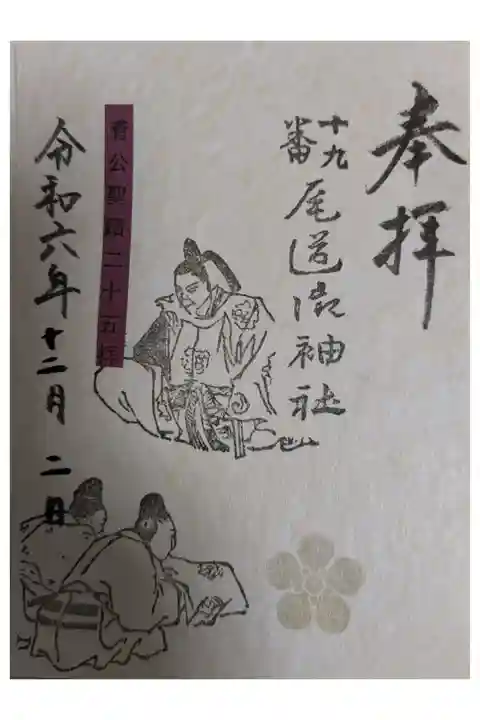 奉拝
十九番 尾道御袖社
菅公聖蹟二十五拝
令和六年十二月二日